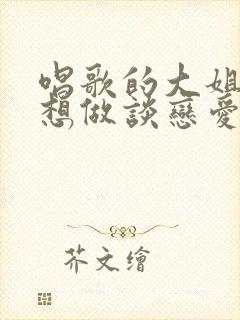 唱歌的大姐
想做談戀愛
芥文繪